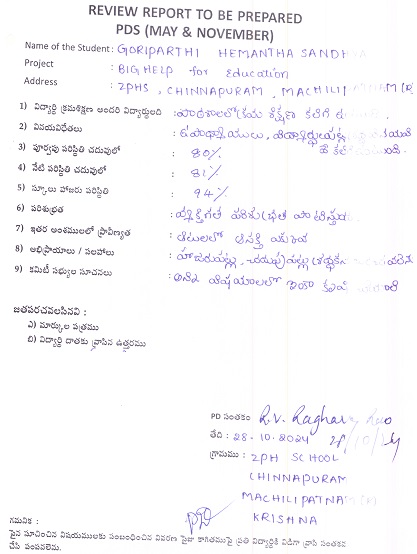 REVIEW REPORT TO BE PREPARED
PDS (MAY & NOVEMBER)
Name of the Student : GORIPARTHI HEMANTHA SANDHYA
Project : BIG HELP for Education
Address : ZPHS, CHINNAPURAM, MACHILIPATNAM (M)
1) విద్యార్థి క్రమశిక్షణ అందరి విద్యార్థులది : పాఠశాలలో క్రమ శిక్షణ కలిగి
2) వినయవిధేతలు : ఉపాధ్యాయులు,
3) పూర్వపు పరిస్థితి చదువులో : 80%
4) నేటి పరిస్థితి చదువులో : 81%
5) స్కూలు హాజరు పరిస్థితి : 94%
6) పరిశుభ్రత : వ్యక్తిగత పరిశుభ్రత
7) ఇతర అంశములలో ప్రావీణ్యత : ఆటలలో ఆసక్తి
8) అభిప్రాయాలు / సలహాలు :
9) కమిటీ సభ్యుల సూచనలు : అన్ని విషయాలలో ఇంకా కృషి
జతపరచవలసినవి :
ఎ) మార్కుల పత్రము
బి) విద్యార్థి దాతకు వ్రాసిన ఉత్తరము
PD సంతకం : R.V. Raghava Rao
తేది : 28-10-2024 28/10/24
గ్రామము : ZPH SCHOOL
CHINNAPURAM
MACHILIPATNAM (M)
KRISHNA
గమనిక :
పైన సూచించిన విషయములకు సంబంధించిన వివరణ పైజా కాగితముపై ప్రతి విద్యార్థికి విడిగా వ్రాసి సంతకం
చేసి పంపవలెను.